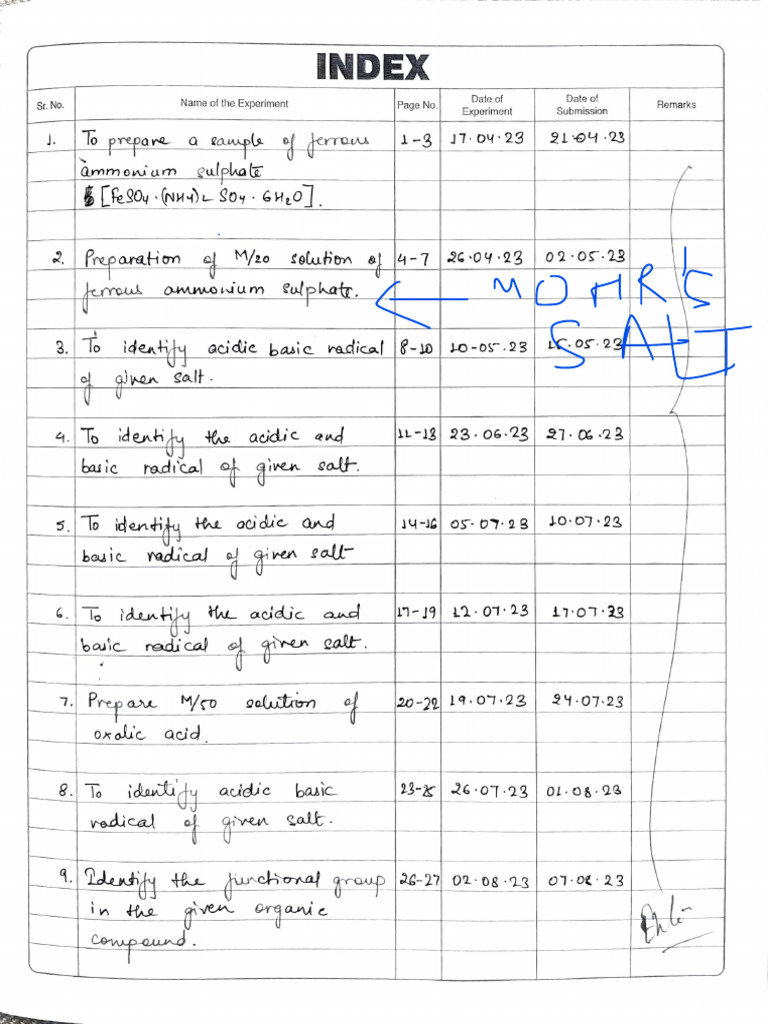 INDEX
Sr. No. Name of the Experiment Page No. Date of Experiment Date of Submission Remarks
1. To prepare a sample of ferrous 1-3 17.04.23 21.04.23
ammonium sulphate
[FeSO4.(NH4)2 SO4.6H2O].
2. Preparation of M/20 solution of 4-7 26.04.23 02.05.23
ferrous ammonium sulphate. ← MOHR'S
SALT
3. To identify acidic basic radical 8-10 10-05.23 15.05.23
of given salt.
4. To identify the acidic and 11-13 23.06.23 27.06.23
basic radical of given salt.
5. To identify the acidic and 14-16 05.07.23 10.07.23
basic radical of given salt
6. To identify the acidic and 17-19 12.07.23 17.07.23
basic radical of given salt.
7. Prepare M/50 solution of 20-22 19.07.23 24.07.23
oxalic acid.
8. To identify acidic basic 23-25 26.07.23 01.08.23
radical of given salt.
9. Identify the functional group 26-27 02.08.23 07.08.23
in the given organic
compound.